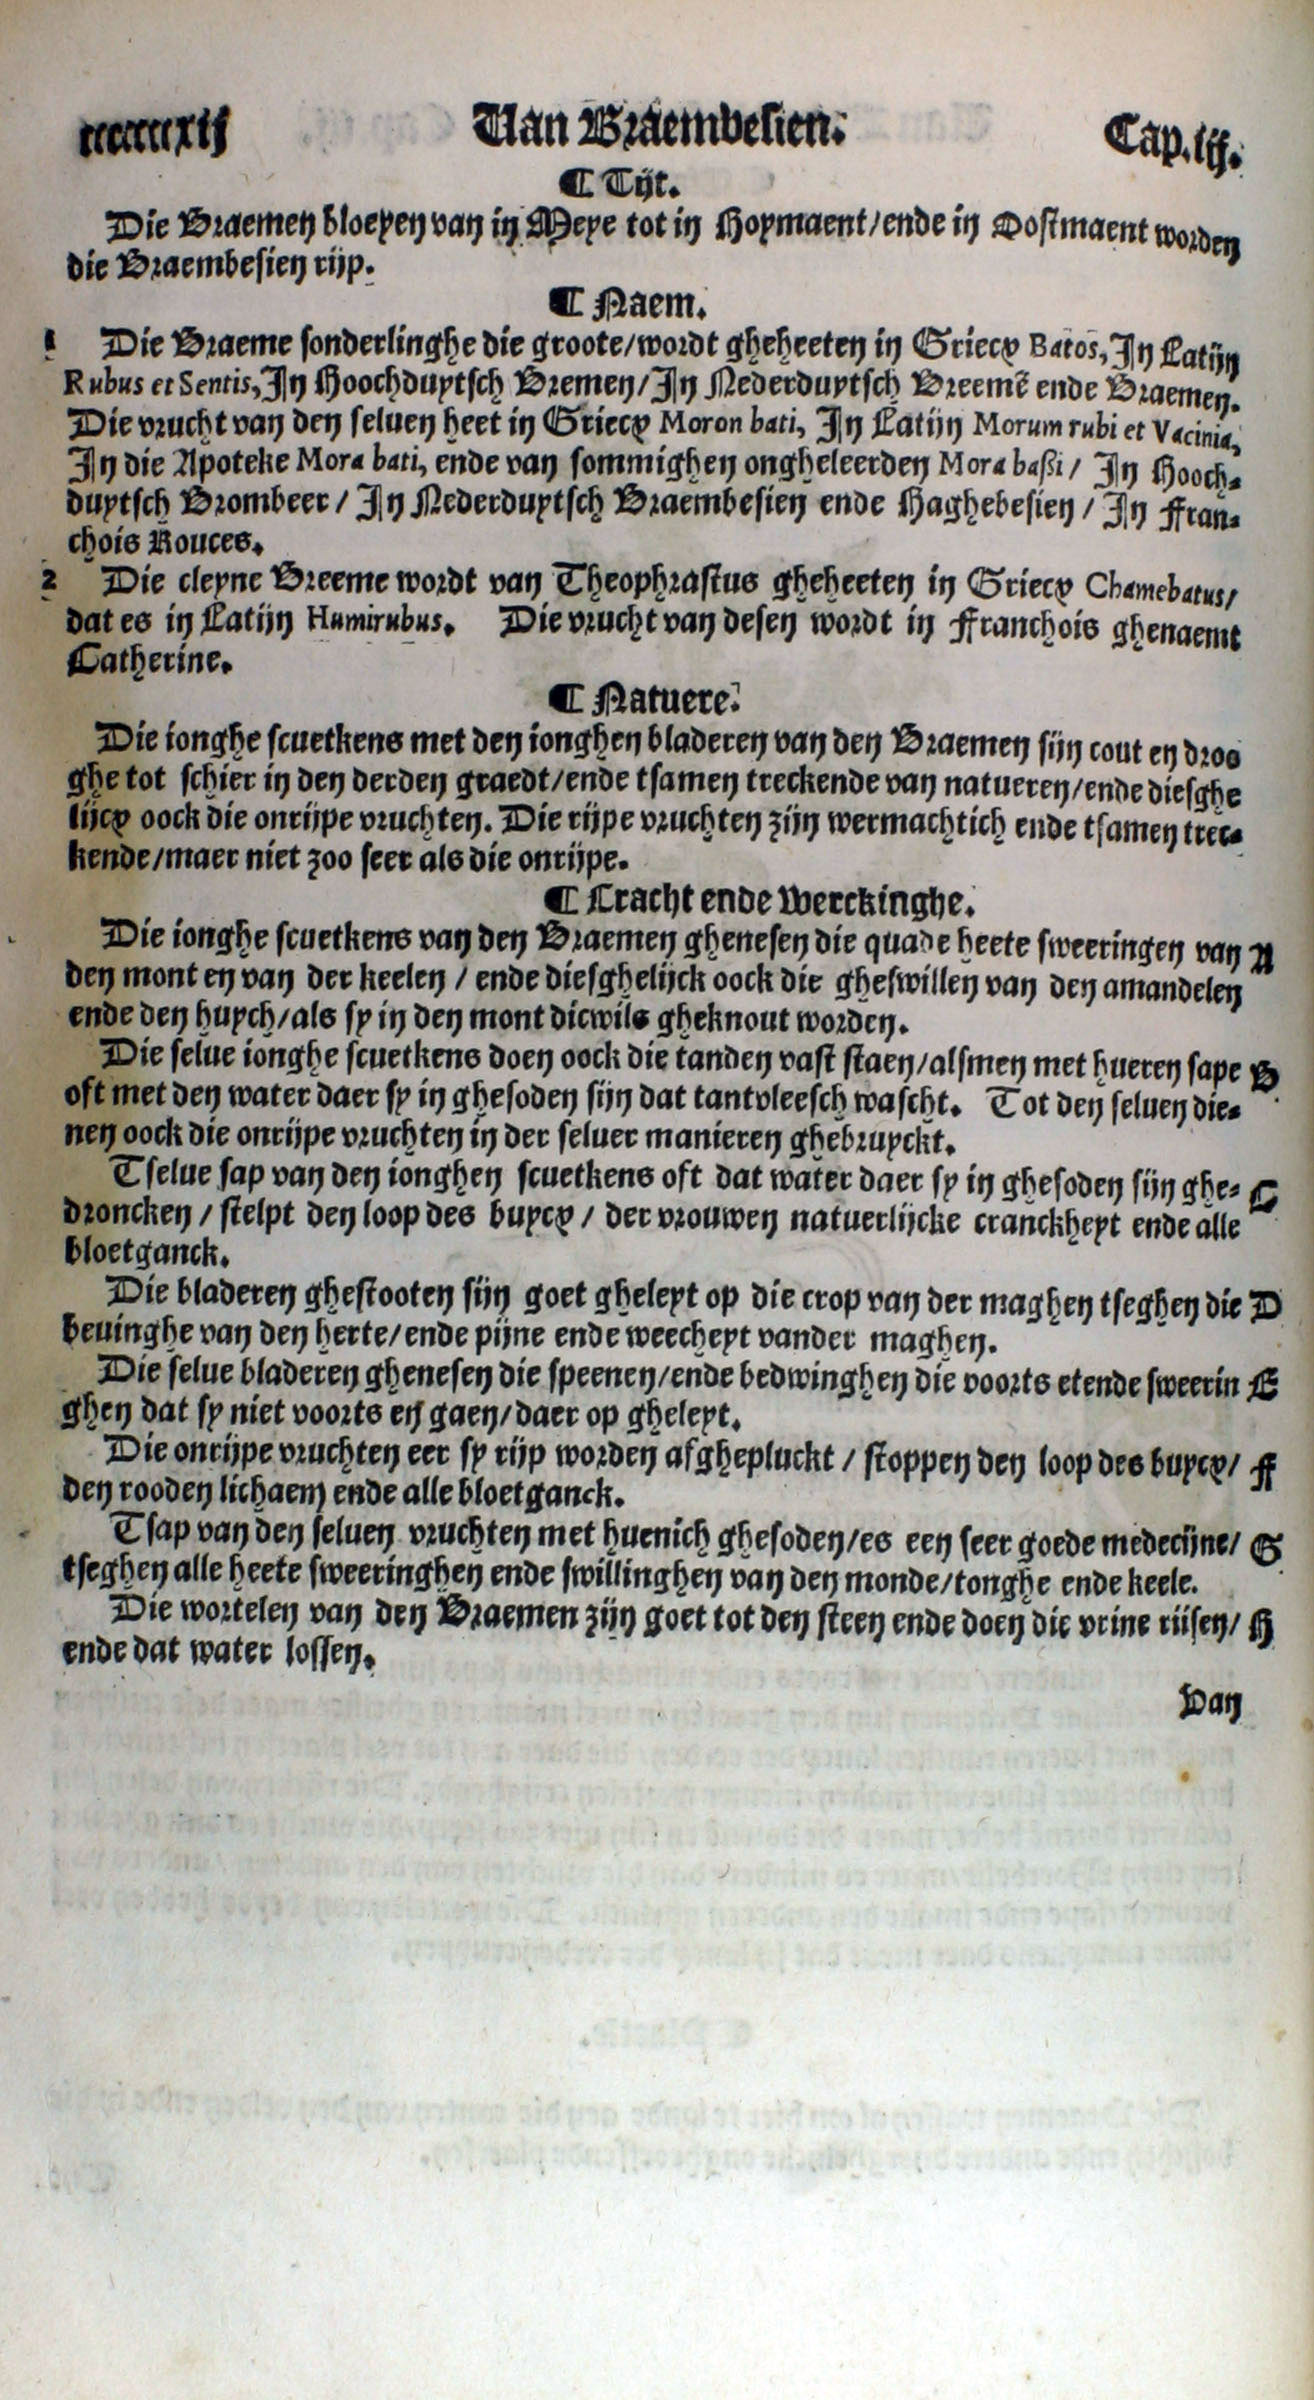 ccccccxij Van Braembesien. Cap.lij.
¶ Tijt.
Die Braemen bloeyen van in Meye tot in Hoymaent/ende in Oostmaent worden
die Braembesien rijp.
¶ Naem.
1 Die Braeme sonderlinghe die groote/wordt gheheeten in Griecx Batos, In Latijn
Rubus et Sentis, In Hoochduytsch Bremen/In Nederduytsch Breemē ende Braemen.
Die vrucht van den seluen heet in Griecx Moron bati, In Latijn Morum rubi et Vacinia,
In die Apoteke Mora bati, ende van sommighen ongheleerden Mora baßi/ In Hooch-
duytsch Brombeer/ In Nederduytsch Braembesien ende Haghebesien/ In Fran-
chois Rouces.
2 Die cleyne Breeme wordt van Theophrastus gheheeten in Griecx Chamebatus/
dat es in Latijn Humirubus. Die vrucht van desen wordt in Franchois ghenaemt
Catherine.
¶ Natuere.
Die ionghe scuetkens met den ionghen bladeren van den Braemen sijn cout en droo
ghe tot schier in den derden graedt/ende tsamen treckende van natueren/ende diesghe
lijcx oock die onrijpe vruchten. Die rijpe vruchten zijn wermachtich ende tsamen trec-
kende/maer niet zoo seer als die onrijpe.
¶ Cracht ende Werckinghe.
Die ionghe scuetkens van den Braemen ghenesen die quade heete sweeringen van A
den mont en van der keelen/ ende diesghelijck oock die gheswillen van den amandelen
ende den huych/als sy in den mont dicwils gheknout worden.
Die selue ionghe scuetkens doen oock die tanden vast staen/alsmen met hueren sape B
oft met den water daer sy in ghesoden sijn dat tantvleesch wascht. Tot den seluen die-
nen oock die onrijpe vruchten in der seluer manieren ghebruyckt.
Tselue sap van den ionghen scuetkens oft dat water daer sy in ghesoden sijn ghe- C
droncken/ stelpt den loop des buycx/ der vrouwen natuerlijcke cranckheyt ende alle
bloetganck.
Die bladeren ghestooten sijn goet gheleyt op die crop van der maghen tseghen die D
beuinghe van den herte/ende pijne ende weecheyt vander maghen.
Die selue bladeren ghenesen die speenen/ende bedwinghen die voorts etende sweerin E
ghen dat sy niet voorts en gaen/daer op gheleyt.
Die onrijpe vruchten eer sy rijp worden afghepluckt/ stoppen den loop des buycx/ F
den rooden lichaem ende alle bloetganck.
Tsap van den seluen vruchten met huenich ghesoden/es een seer goede medecijne/ G
tseghen alle heete sweeringhen ende swillinghen van den monde/tonghe ende keele.
Die wortelen van den Braemen zijn goet tot den steen ende doen die vrine rijsen/ H
ende dat water lossen.
Van